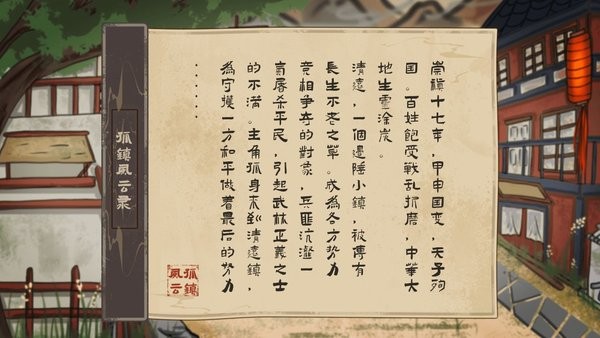 崇禎十七年，甲申国变，天子殉
国。百姓飽受戰乱折磨，中華大
地生靈涂炭。
清遠，一個邊陲小鎮，被傳有
長生不老之草。成為各方势力
竞相争夺的對象，兵匪沆瀣一
氣屠杀平民，引起武林正義之士
的不满。主角孤身来到清遠鎮，
為守護一方和平做着最后的努力
......
孤鎮风云录
孤鎮
风云